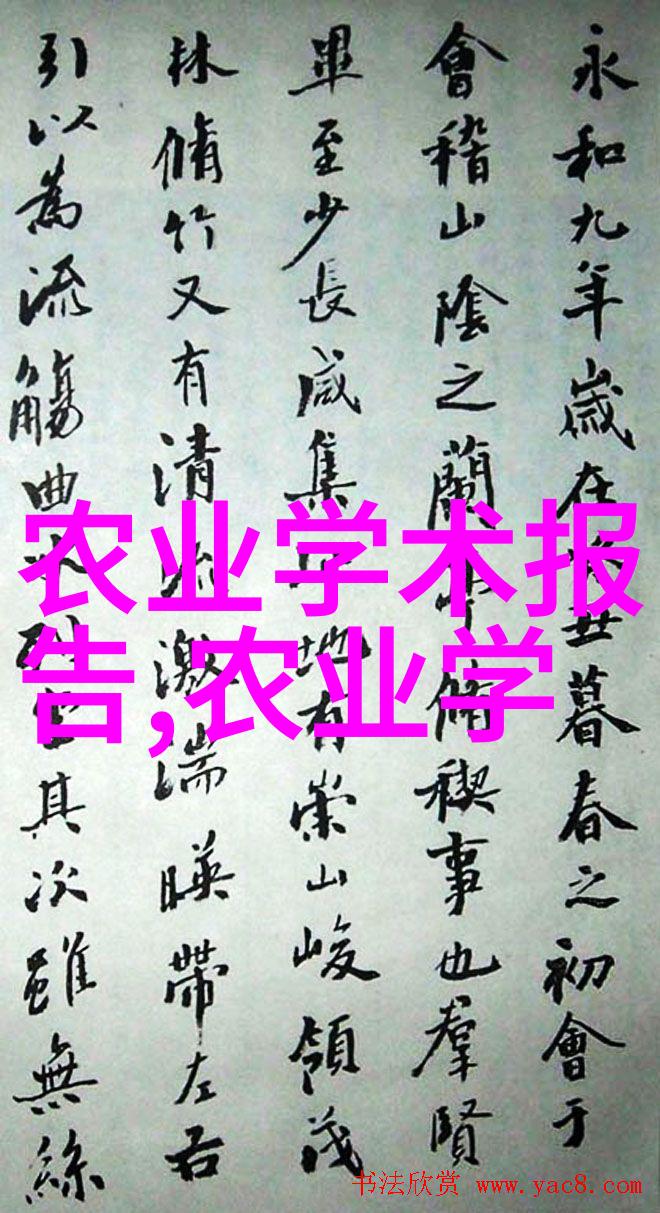 永和九年歲在癸丑暮春之初會于
會稽山陰之蘭亭脩稧事也羣賢
畢至少長咸集此地有崇山峻領茂
林脩竹又有清流激湍暎帶左右
引以為流觴曲水列坐其次雖無絲
农业学术报
告,农业学
书法欣赏 www.yac8.com